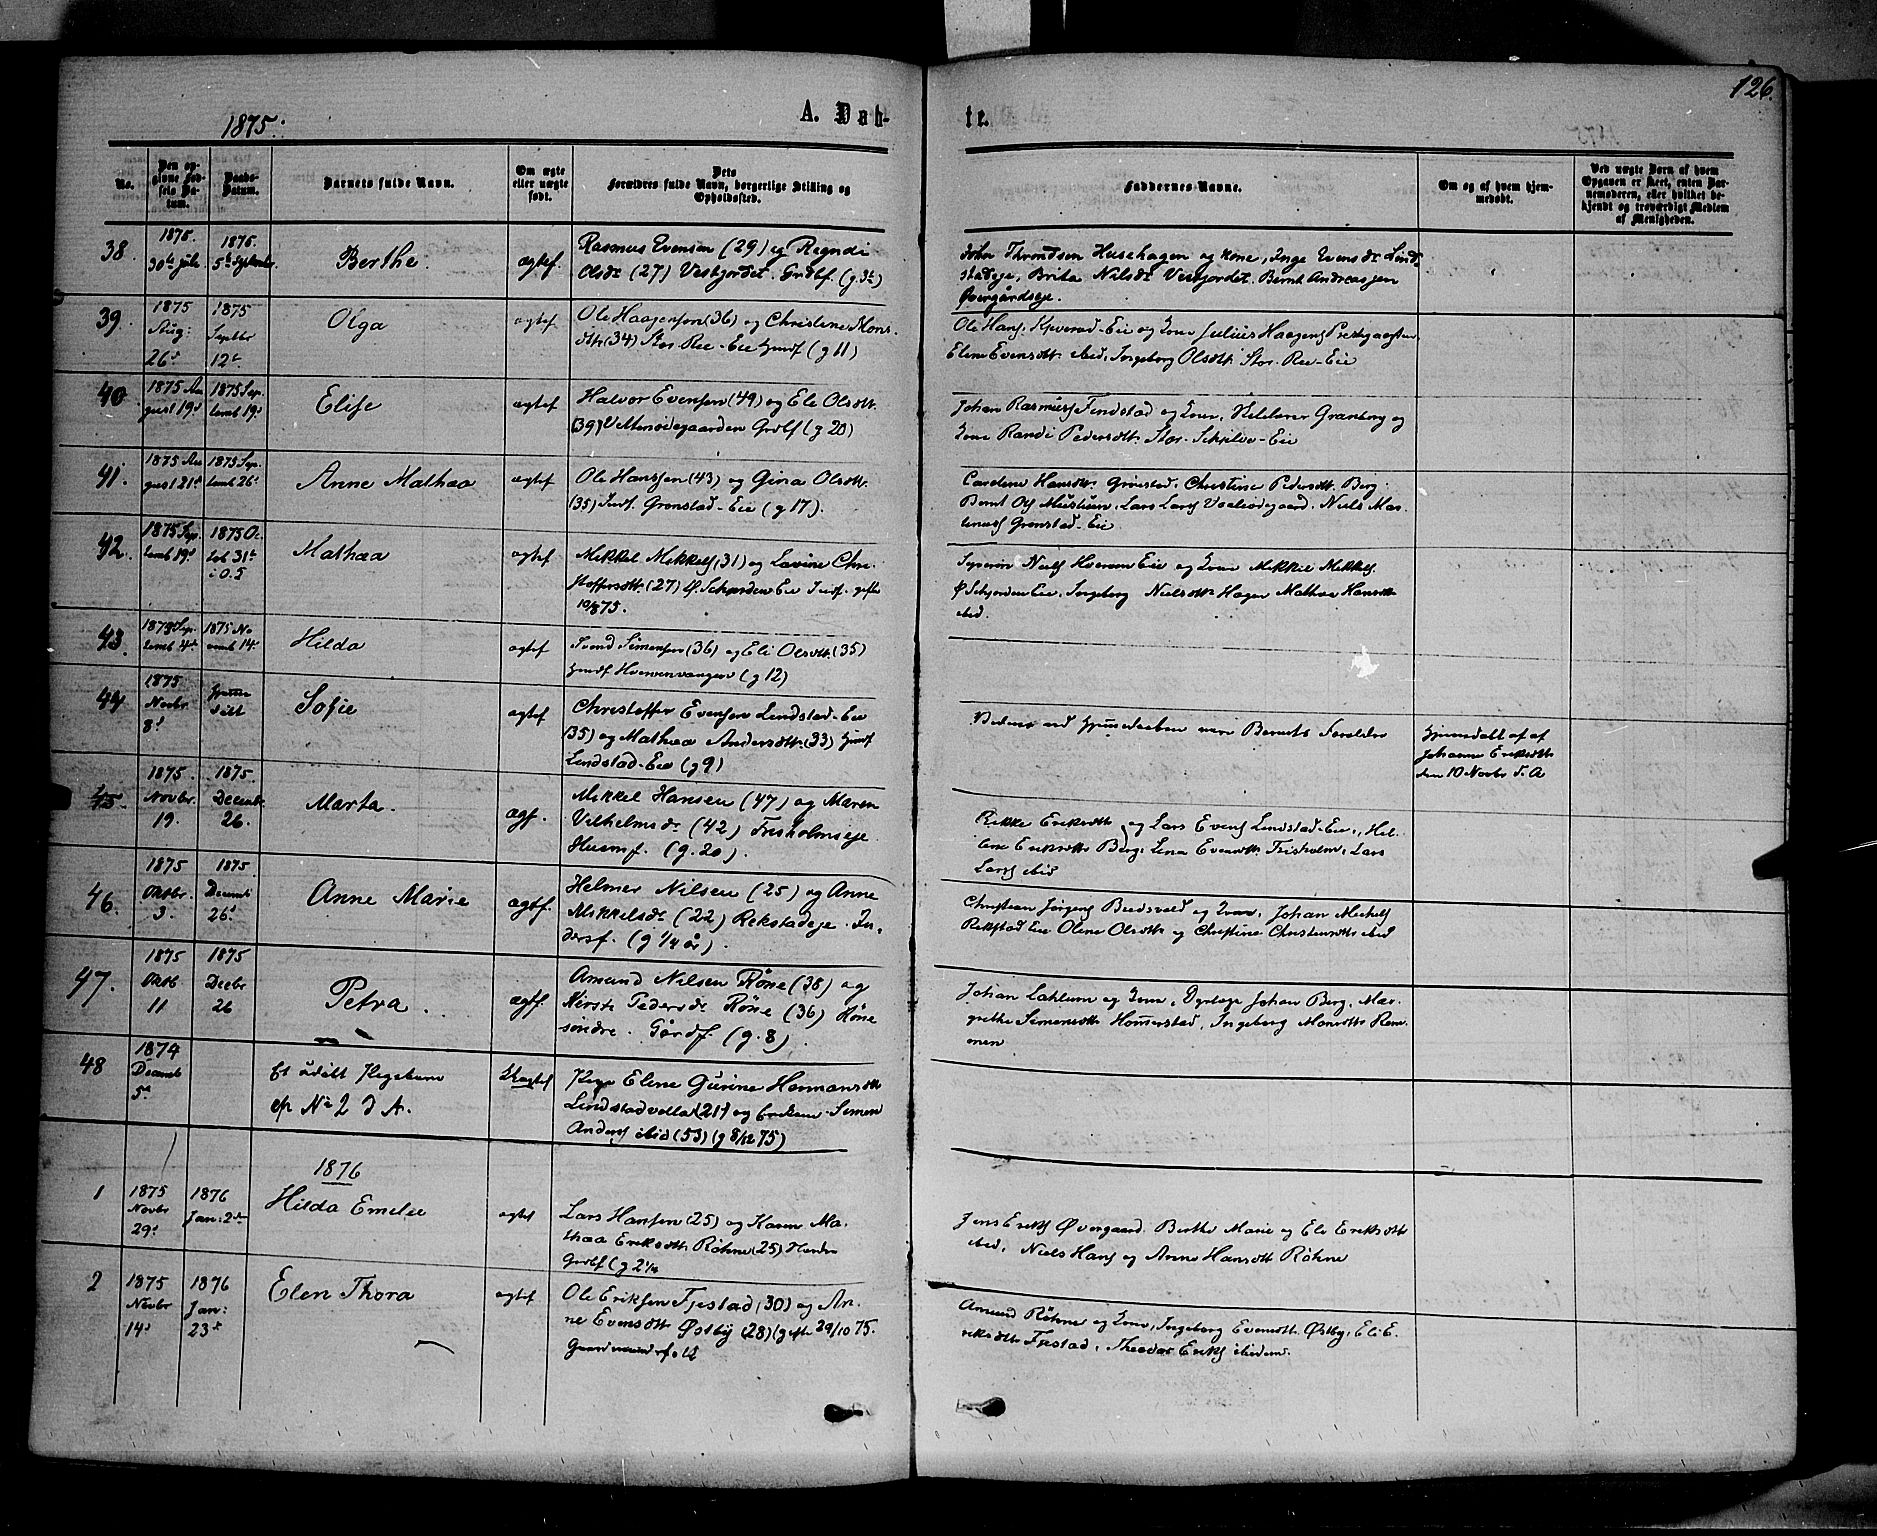 126.
1875.
A. Døb-
te.
No.
Den op-
givne Fød-
sels Da-
tum.
Daabs-
Datum.
Barnets fulde Navn.
Om ægte
eller uægte
født.
Dets
Forældres fulde Navn, borgerlige Stilling og
Opholdssted.
Faddernes Navne.
Om og af hvem hjem-
medøbt.
Ved uægte Børn af hvem
Opgaven er skeet, enten Bar-
nemoderen, eller hvilket be-
kjendt og troværdigt Medlem
af Menigheden.
38.
1875.
30te Juli
1875.
5te September
Berthe.
ægtef.
Rasmus Evensen (29) og Regndi
Olsdt (27) Vestjordet. Grdbf. (g.3½)
John Throndsen Husehagen og kone, Inge Evensdt Lind-
stadeje, Brita Nilsdt Vestjordet. Bernt Andreassen
Øvergårdseje.
39.
1875
Aug:
26d
1875
Septbr
12te
Olga
ægtef
Ole Haagensen (36) og Christine Mons-
dtr (34) Stor Ree-Eie Husf (g 11)
Ole Hans Kpverad-Eie og Kone Julius Haagens
Elene Evensdtt ibid, Ingeborg Olsdtt Stor-Ree-Eie
40.
1875 Au
gust 19d
1875 Sep.
temb 19d
Elise
ægtef
Halvor Evensen (49) og Eli Olsdtt.
(39) Grdbf (g 20)
Johan Rasmus Findstad og Kone, Granberg og
Kone Randi Pedersdtt. Stor-Eie
41.
1875 Au
gust 21d
1875 Sep.
temb 26d
Anne Mathea
ægtef
Ole Hanssen (43) og Gina Olsdtt.
(35) Indf. Grønstad-Eie (g 17).
Caroline Hansdtt Grønstad, Christine Pedersdtt. Berg.
Bernt Ols Lars Lars Niels Mar-
Grønstad-Eie
42.
1875 Sep.
temb 19d
1875 Oc
tob 31te
i O.S
Mathea
ægtef
Mikkel Mikkels (31) og Lovine Chri-
stoffersdtt. (27) Ø. Schjørden Eie Indf. gifte
10/8 75.
Syverin Niels Eie og Kone Mikkel Mikkels.
Ø Schjørden Eie, Ingeborg Nielsdtt Hagen Mathea Hansdtt
ibid.
43.
1875 Sep.
temb 4de
1875 No
vemb 14.
Hilda
ægtef
Svend Simensen (36) og Eli Olsdtt. (35)
Husf (g 12)
44
1875
Novbr
8d
Hjemme
døbt
Sofie
ægtef
Christoffer Evensen Lindstad-Eie
(35) og Mathea Andersdtt. (33) Husf
Lindstad-Eie (g 9)
ved Hjemmedaaben vare Barnets Forældre
Hjemmedøbt af af
Johanne Eriksdtt
den 10 Novbr S. A
45.
1875.
Novbr.
19.
1875.
Decemb.
26.
Marta.
ægf.
Mikkel Hansen (47) og Maren
Vilhelmsdt (42) Frisholmseje
Husmf. (g. 20).
Rikke Eriksdtt og Lars Evens Lindstad-Eie, Hel-
ene Eriksdtt Berg, Lina Evensdtt. Frisholm, Lars
Lars ibid
46.
1875
Oktbr.
3.
1875.
Decemb
26d
Anne Marie
ægtf.
Helmer Nilsen (25) og Anne
Mikkelsdt (22) Rekstadeje. In-
dersf. (g 1/4 år).
Christian Jørgens Budsvold og Kone, Johan Michels
Rekstad Eie Olene Olsdtt og Christine Christensdtt ibid
47.
1875
Oktb.
11
1875
Decbr
26
Petra.
ægtf.
Amund Nilsen Røne (38) og
Kirsti Pedersdt Røne (36) Røne
søndre. Gårdf. (g. 8).
Johan Lahlum og Kone, Johan Berg, Mar-
grethe Simensdtt Homerstad, Ingeborg Monsdtt Rem-
men
48
1874
Decemb
5te
Et udøbt Pigebarn
cfr No 2 d A.
Uægtef
Pige Elene Gurine Hermansdtt
Lindstadvolla (21) og Enkem. Simen
Anders ibid (53) (g 8/12 75)
1876
1
1875
Novbr
29d
1876
Jan: 2den
Hilda Emelie
ægtef
Lars Hansen (25) og Karen Ma-
thea Eriksdtt Røhne (25) Nordre
Grdbf (g 2 1/4
Jens Eriks Øvergaard. Berthe Marie og Eli Eriksdtt
ibid, Niels Hans og Anne Hansdtt Røhne
2
1875
Novbr
14d
1876
Jan:
23de
Elen Thora
ægtef
Ole Eriksen Fjestad (30) og An-
ne Evensdtt Østby (28) (gifte 29/10 75.
Gaardmandsf.
Amund Røhne og Kone, Ingeborg Evensdtt. Østby, Eli E-
riksdtt Fjestad, Theodor Eriks ibidem.